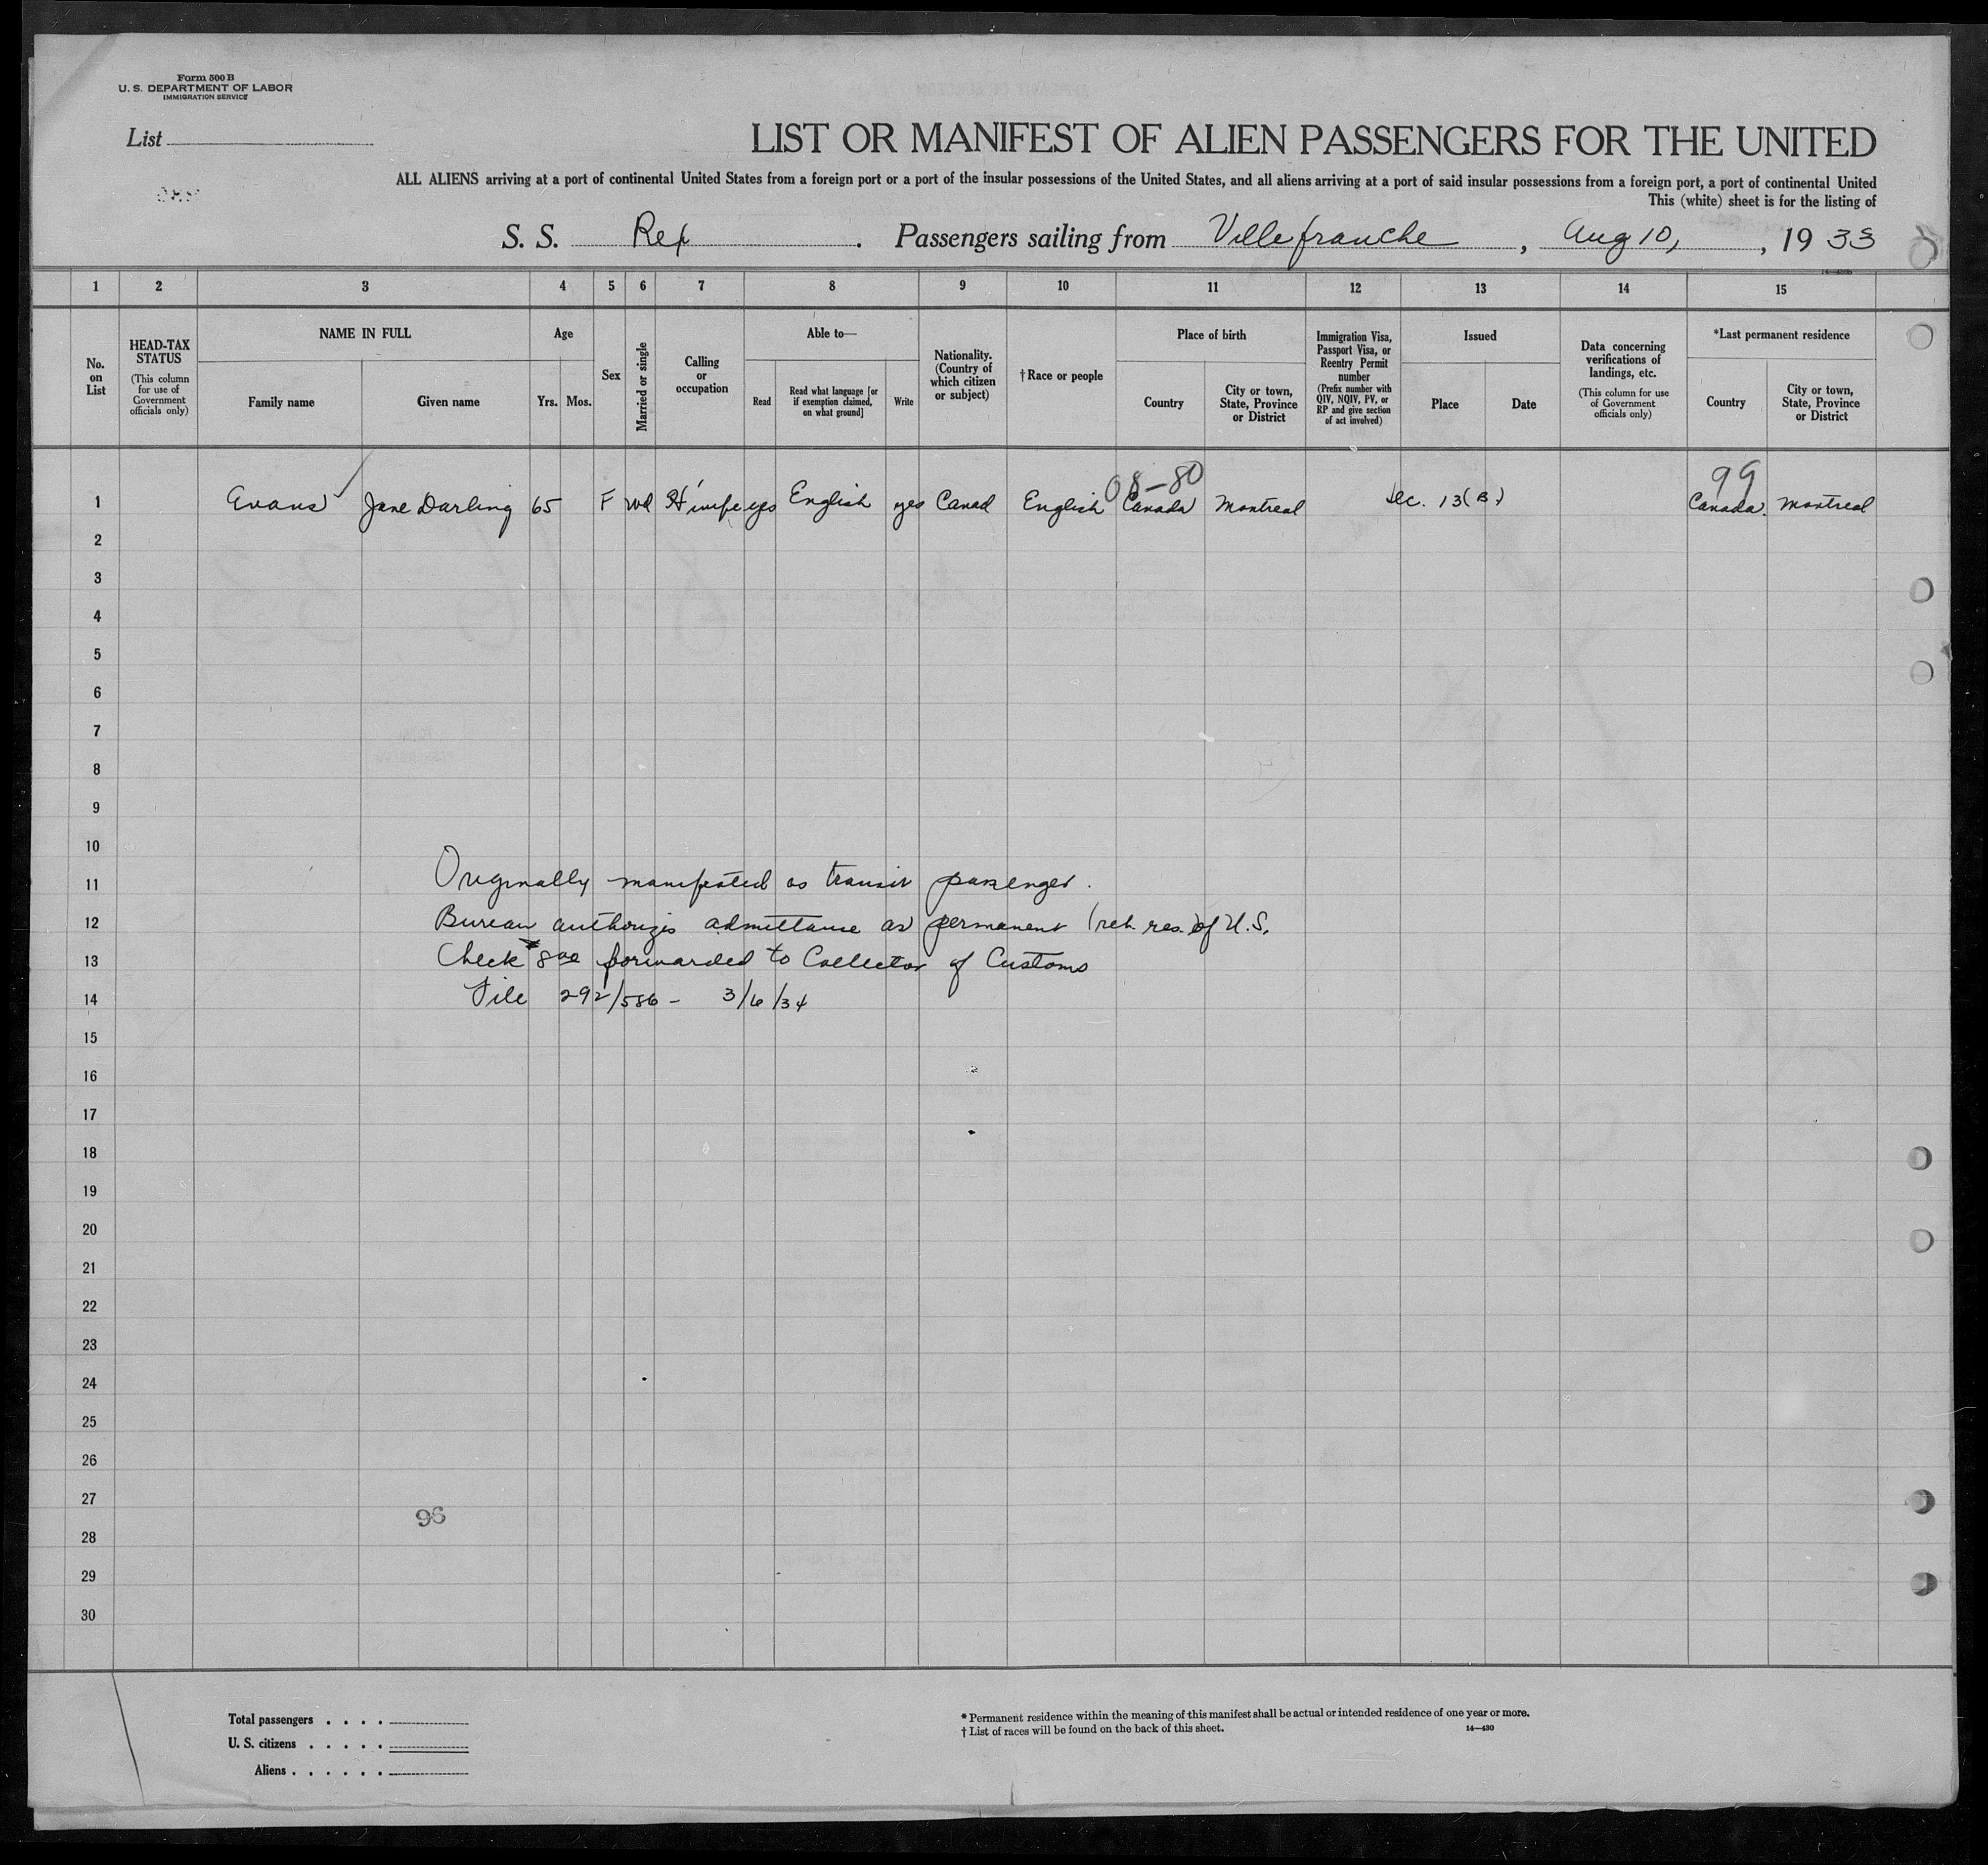 Form 500 B
U. S. DEPARTMENT OF LABOR
IMMIGRATION SERVICE
List
LIST OR MANIFEST OF ALIEN PASSENGERS FOR THE UNITED
ALL ALIENS arriving at a port of continental United States from a foreign port or a port of the insular possessions of the United States, and all aliens arriving at a port of said insular possessions from a foreign port, a port of continental United
This (white) sheet is for the listing of
S. S. Rex. Passengers sailing from Villefranche, Aug 10, , 1933
1 2 3 4 5 6 7 8 9 10 11 12 13 14 15
No. on List
HEAD-TAX STATUS
(This column for use of Government officials only)
NAME IN FULL
Family name
Given name
Age
Yrs. Mos.
Sex
Married or single
Calling or occupation
Able to—
Read
Read what language [or if exemption claimed, on what ground]
Write
Nationality. (Country of which citizen or subject)
† Race or people
Place of birth
Country
City or town, State, Province or District
Immigration Visa, Passport Visa, or Reentry Permit number
(Prefix number with QIV, NQIV, PV, or RP and give section of act involved)
Issued
Place
Date
Data concerning verifications of landings, etc.
(This column for use of Government officials only)
*Last permanent residence
Country
City or town, State, Province or District
08-80 99
1 Evans Jane Darling 65 F Wd H'wife yes English yes Canad English Canada Montreal Sec. 13(B.) Canada. Montreal
2
3
4
5
6
7
8
9
10
11 Originally manifested as transit passenger.
12 Bureau authorizes admittance as permanent (ret. res.) of U.S.
13 Check forwarded to Collector of Customs
14 File 292/586 - 3/6/34
15
16
17
18
19
20
21
22
23
24
25
26
27
96
28
29
30
Total passengers . . . .
U. S. citizens . . . . .
Aliens . . . . . .
* Permanent residence within the meaning of this manifest shall be actual or intended residence of one year or more.
† List of races will be found on the back of this sheet.
14—430